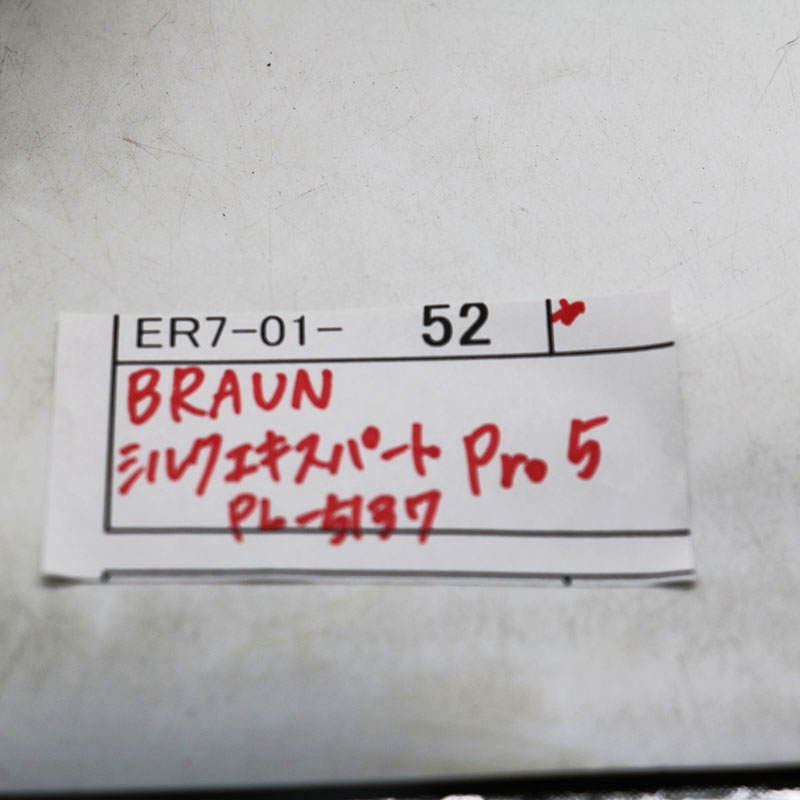 ER7-01- 52
BRAUN
シルクエキスパート Pro 5
PL-5137